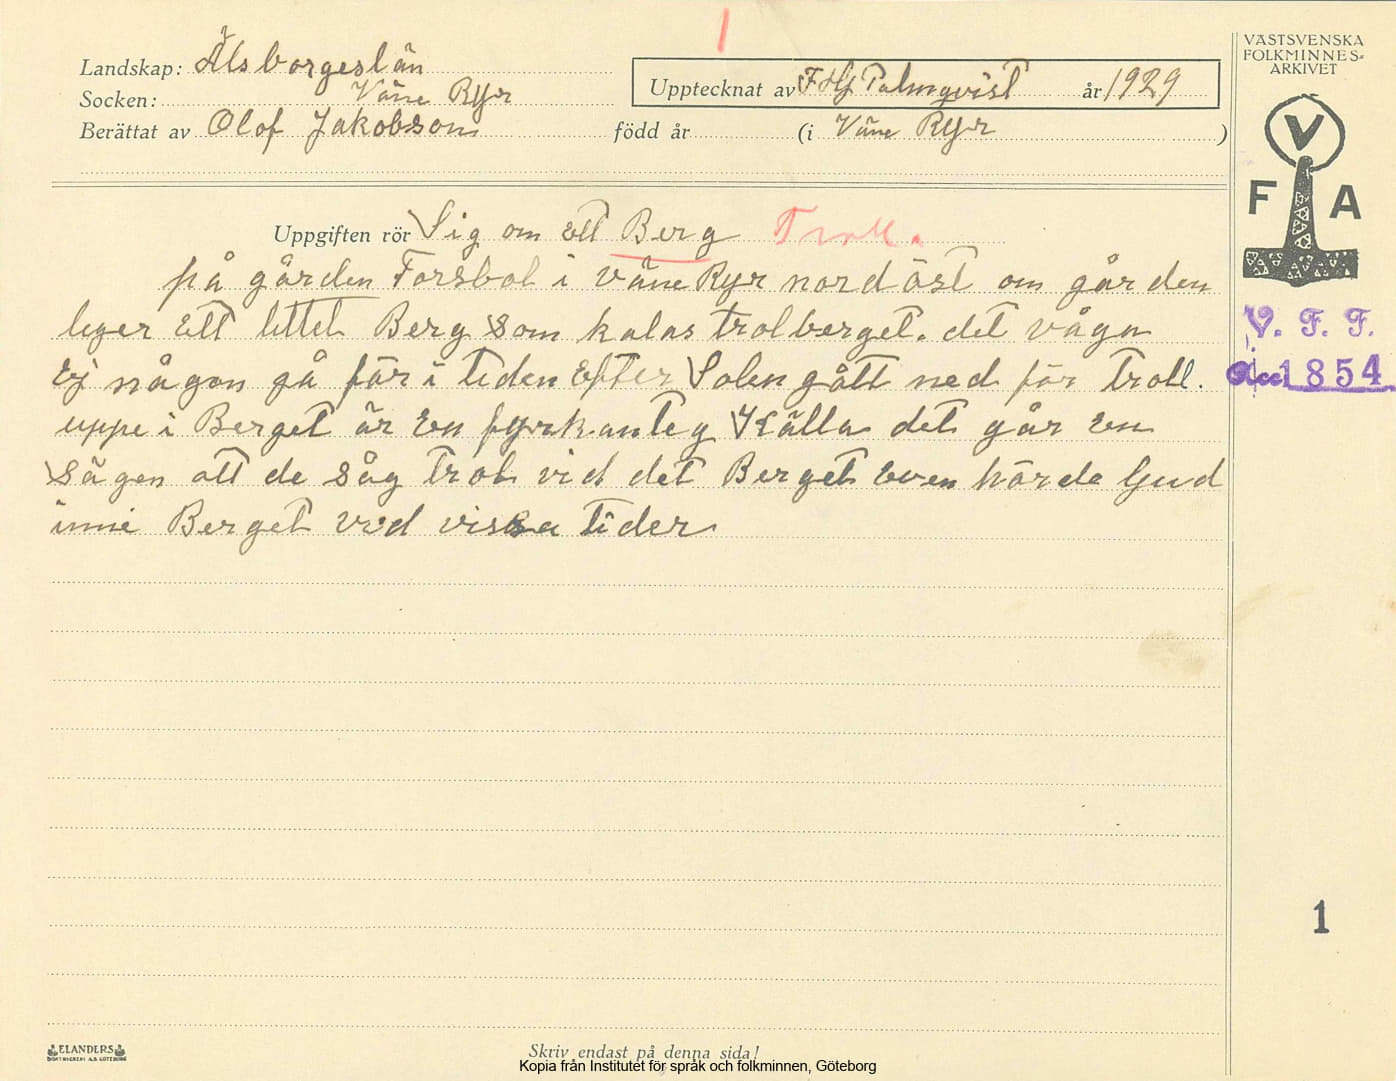 1
Landskap: Älsborgeslän
Socken: Väne Ryr
Berättat av Olof Jakobson född år (i Väne Ryr )
Upptecknat av F Hj Palmqvist år 1929
VÄSTSVENSKA
FOLKMINNES-
ARKIVET
V
F A
V. F. F.
Acc 1854
Uppgiften rör Sig om ett Berg Troll.
på gården Forsbol i väne Ryr nordöst om gården
liger ett littet Berg som kalas trolberget. det våga
Ej någon gå för i tiden Efter Solen gått ned för troll.
uppe i Berget är En fyrkanteg Källa det går en
sägen att de såg trol vid det Berget även hörde ljud
inne Berget vid vissa tider
1
ELANDERS
BOKTRYCKERI A.B. GÖTEBORG
Skriv endast på denna sida!
Kopia från Institutet för språk och folkminnen, Göteborg